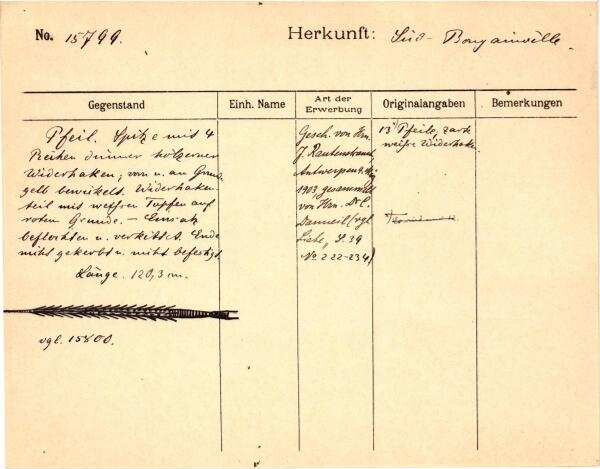 No. 15799.
Herkunft: Süd-Bougainville.
Gegenstand
Einh. Name
Art der Erwerbung
Originalangaben
Bemerkungen
Pfeil. Spitze mit 4
Reihen dünner hölzerner
Widerhaken; vorn u. am Grunde
gelb bewickelt. Widerhaken-
teil mit weissen Tupfen auf
roten Grunde. – Einsatz
beflochten u. verkittet. Ende
nicht gekerbt u. nicht befestigt.
Länge. 120,3 cm.
vgl. 15800.
Gesch. von Hrn.
J. Rautenstrauch,
Antwerpen
1903 gesammelt
von Hrn. Dr. C.
Danneil (vgl.
Liste, S. 39
No 222-234)
13 Pfeile, zart
weisse Widerhak.